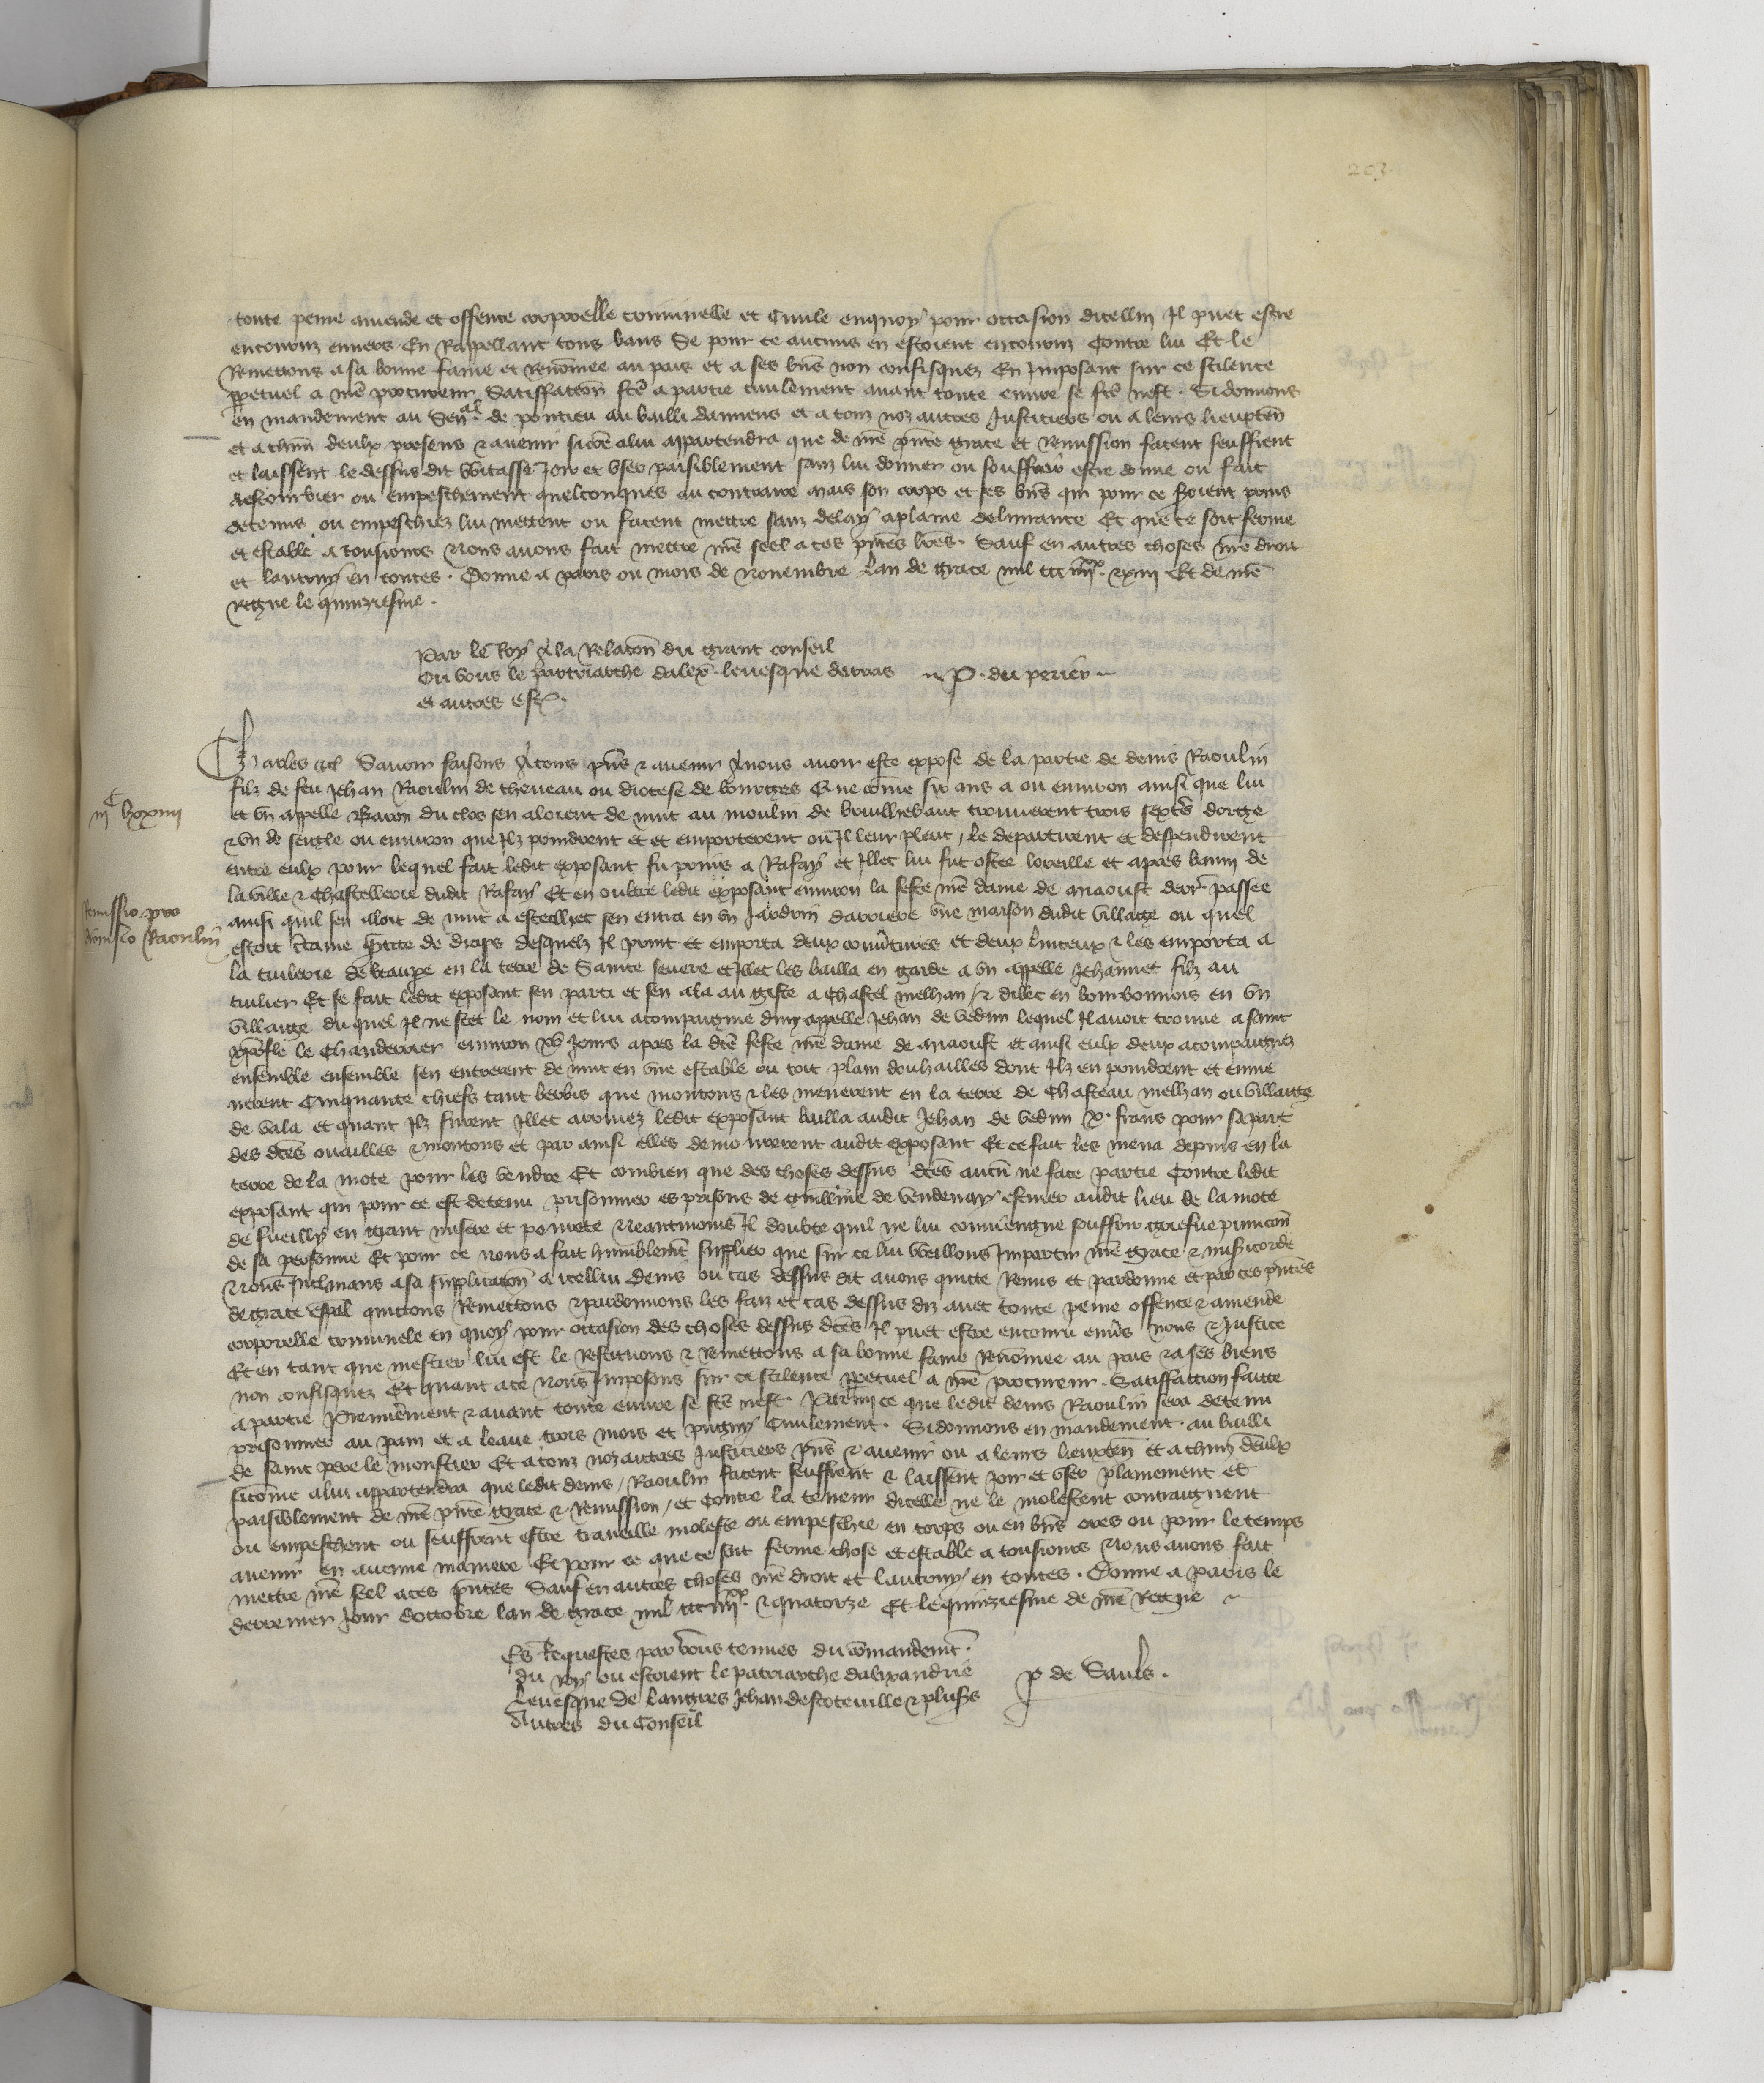 203
toute peine amende et offence corporelle criminelle et civile enquoy pour occasion dicellui Il puet estre
encouruz envers En Rappellant tous bans Se pour ce aucuns en estoient encouruz Contre lui Et le
Remettons a sa bonne fame et Renomee au pais et a ses bns non confisquez En Imposant sur ce scilence
ppetuel a nre procureur Satiffaccon fcte a partie civilement avant toute euvre se fcte nest . Si donnons
en mandement au Senal de pontieu au bailli damiens et a touz noz autres Justiciers ou a leurs lieuxten
et a chun deulx presens & avenir sicome alui appartendra que de nre pnte grace et Remission facent seuffrent
et laissent le dessus dit Witasse Joir et user paisiblement sanz lui donner ou souffrir estre donne ou fait
destourbier ou empeschement quelconques au contraire Mais son corps et ses bns qui pour ce seroient prins
detenus ou empeschiez lui mettent ou facent mettre sanz delay a plaine delivrance Et que ce soit ferme
et estable a tousiours Nous avons fait mettre nre seel a ces pntes lres . Sauf en autres choses nre droit
et lautruy en toutes . Donne a paris ou mois de Novembre Lan de grace mil ccc iiiixx . & xiiii Et de nre
Regne le quinziesme .
Par le Roy A la Relacon du grant conseil
Ou vous le patriarche dalex levesque darras P . du perier
et autres est
Charles &c Savoir faisons A tous pns & avenir A nous avoir este expose de la partie de denis Raoulin
filz de feu Jehan Raoulin de theneau ou diocese de bourges Que come six ans a ou environ ainsi que lui
et un appelle Baron du clos sen aloient de nuit au moulin de bruilhebaut trouverent trois sextrs dorge
& un de seigle ou environ que Ilz prindrent et et emporterent ou Il leur pleut / le departirent et despendirent
entre eulx pour lequel fait ledit exposant fu prins a Rafay et Illec lui fut ostee loreille et apres banny de
la ville & Chastellerie dudit Rafay Et en oultre ledit exposant environ la feste nre dame de myaoust derr passee
ainsi quil sen aloit de nuit a esteclhet sen entra en un Jardrin darriere une maison dudit village ou quel
estoit ctaine qtite de draps desquelz Il print et emporta deux couvtures et deux linceux & les emporta a
la tiulerie de beaupe en la terre de Sainte severe et Illec les bailla en garde a un appelle Jehannet filz au
tiulier Et se fait ledit exposant sen parti et sen ala au giste a Chastel melhan / & dilec en bourbonnois en un
village du quel Il ne scet le nom et lui acompaigne dun appelle Jehan de vedun lequel Il avoit trouve a saint
le Chanderier environ xv Jours apres la dte feste nre dame de myaoust et ainsi eulx deux acompaignez
ensemble ensemble sen entrerent de nuit en une estable ou toit plain douhailles dont Ilz en prindrent et emme
nerent Cinquante chiefs tant berbis que moutons & les menerent en la terre de Chasteau melhan ou village
de vala et quant Ilz furent Illec arrivez ledit exposant bailla audit Jehan de vedun x . frans pour sa part
des dtes ouailles & moutons et par ainsi elles demourerent audit exposant Et ce fait les mena depuis en la
terre de la mote pour les vendre Et combien que des choses dessus dtes aucun ne face partie Contre ledit
exposant qui pour ce est detenu prisonnier es prisons de guillme de vendenay escuier audit lieu de la mote
de fueilly en grant misere et povrete Neantmoins Il doubte quil ne lui conviengne souffrir griefve punicon
de sa personne Et pour ce nous a fait humblemt supplier que sur ce lui veillons Impartir nre grace & misicorde
& Nous Inclinans a sa supplicacon a icellui Denis ou cas dessus dit avons quicte Remis et pardonne et par ces pntes
de grace espal quictons Remettons & pardonnons les faiz et cas dessus diz avec toute peine offence & amende
corporelle criminele en quoy pour occasion des choses dessus dtes Il puet estre encouru envs nous & Justice
Et en tant que mestier lui est le Restituons & Remettons a sa bonne fame Renomee au pais & a ses biens
non confisquez Et quant a ce Nous Imposons sur ce scilence ppetuel a nre procureur . Satiffaccion faitte
a partie Premierement & avant toute euvre se fcte nest . Parmy ce que ledit denis Raoulin sera detenu
prisonnier au pain et a leaue trois mois et pugny Civilement . Si donnons en mandement . au bailli
de saint pere le moustier Et a touz noz autres Justiciers pns & avenir ou a leurs lieuxten et a chun deulx
sicome alui appartendra que ledit denis / Raoulin facent seuffrent & laissent joir et user plainement et
paisiblement de nre pnte grace & Remission / et Contre la teneur dicelle ne le molestent contraignent
ou empeschent ou seuffrent estre travaille moleste ou empeschie en corps ou en bns ores ou pour le temps
avenir en aucune maniere Et pour ce que ce soit ferme chose et estable a tousiours Nous avons fait
mettre nre seel a ces pntes Sauf en autres choses nre droit et lautruy en toutes . Donne a paris le
derrenier Jour doctobre lan de grace mil ccc iiiixx . & quatorze Et le quinziesme de nre Regne
iiic lxxiiii
Remissio pro
dionisio Raoulin
Es Requestes par vous tenues du comandemt .
du Roy ou estoient le patriarche dalixandrie P de Sauls .
Levesque de Langres Jehan destoteville & plusrs
Autres du Conseil